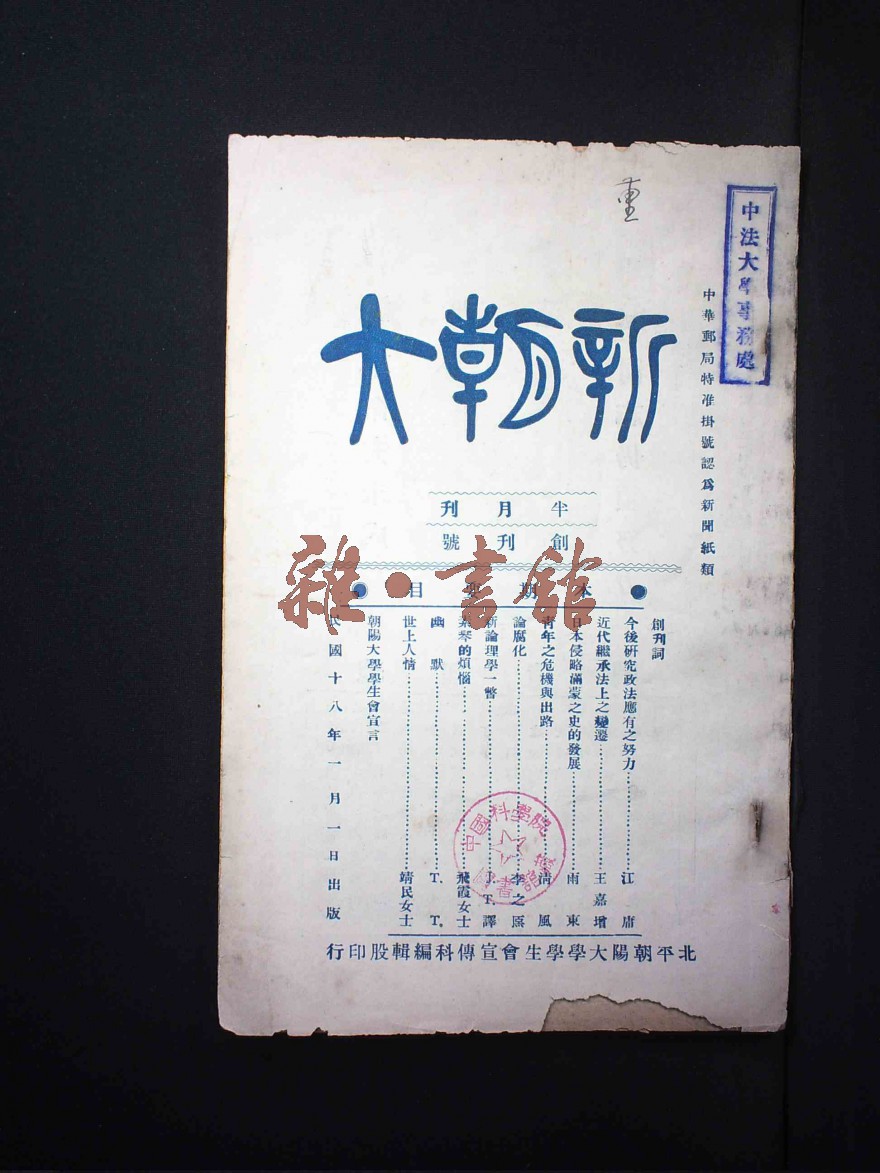 重
中法大學事務處
中華郵局特准掛號認爲新聞紙類
新朝大
半月刊
創刊號
本期要目
創刊詞
今後研究政法應有之努力……江庸
近代繼承法上之變遷……王嘉增
日本侵略滿蒙之史的發展……雨東
青年之危機與出路……清風
論腐化……李之原
新論理學一瞥……J.T.譯
素琴的煩惱……飛霞女士
幽默……T. T.
世上人情……靖民女士
朝陽大學學生會宣言
民國十八年一月一日出版
北平朝陽大學學生會宣傳科編輯股印行
中國科學院圖書館藏
雜·書館